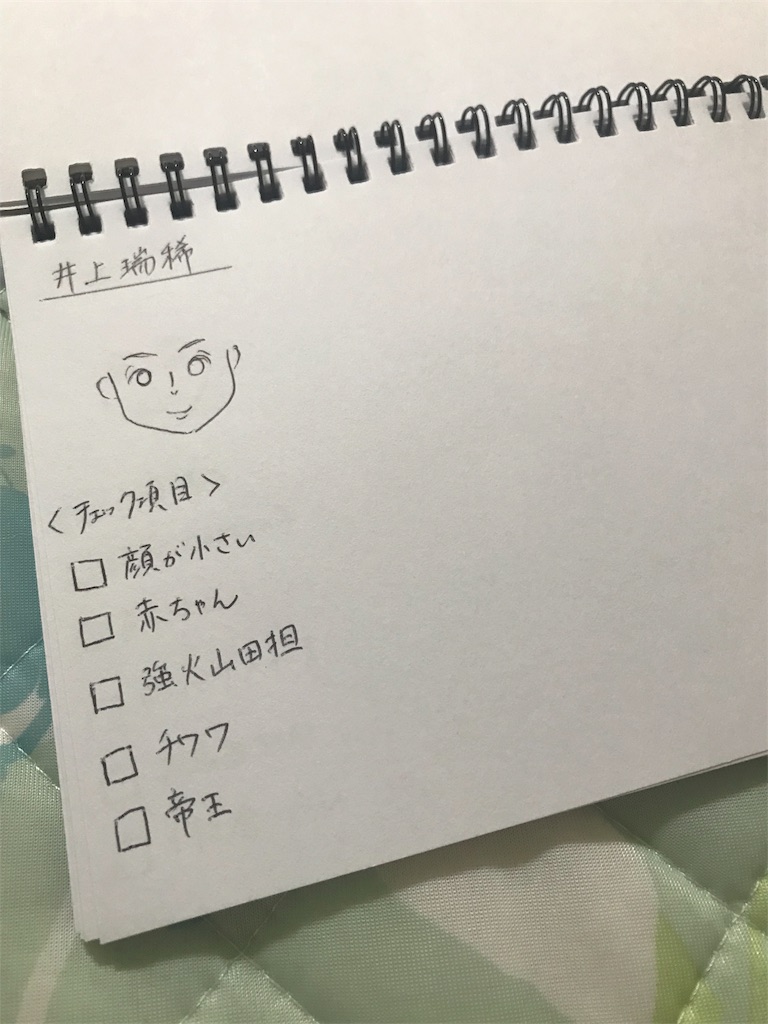 井上瑞稀
<チェック項目>
□ 顔が小さい
□ 赤ちゃん
□ 強火山田担
□ チワワ
□ 帝王